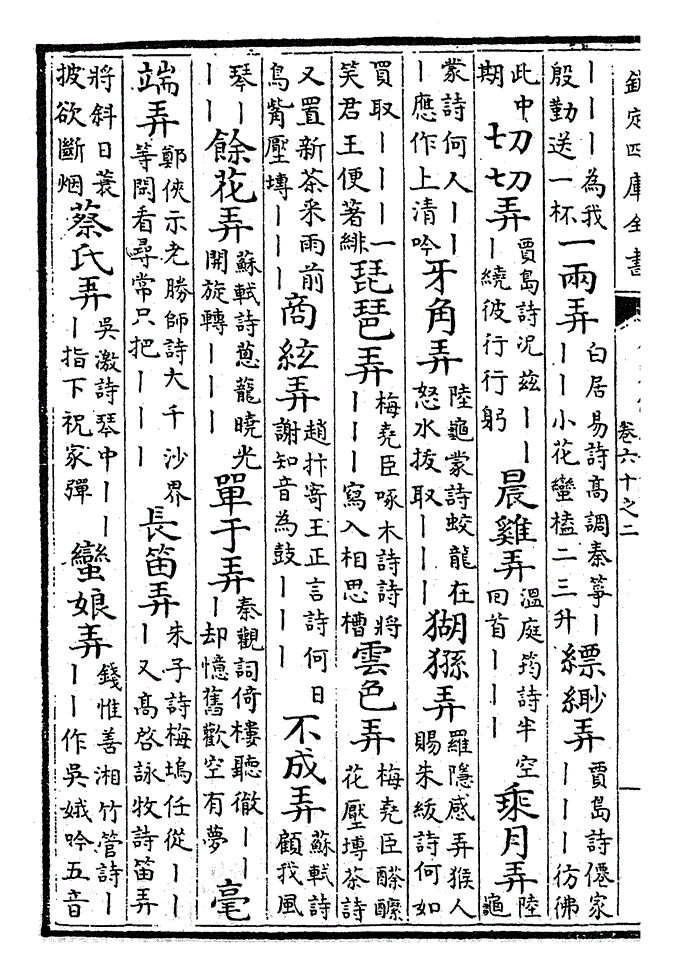 欽定四庫全書 卷六十之二
丨丨丨為我殷勤送一杯 一兩弄 白居易詩高調秦箏丨丨丨小花蠻榼二三升 縹緲弄 賈島詩僊家丨丨丨彷彿
此中期 切切弄 賈島詩況兹丨丨丨繞彼行行躬 晨雞弄 溫庭筠詩半空回首丨丨丨 乘月弄 陸龜
蒙詩何人丨丨丨應作上清吟 牙角弄 陸龜蒙詩蛟龍在怒水拔取丨丨丨 猢猻弄 羅隱感弄猴人賜朱紱詩何如
買取丨丨丨一笑君王便著緋 琵琶弄 梅堯臣啄木詩詩將丨丨丨寫入相思槽 雲色弄 梅堯臣花壓塼茶詩
又置新茶釆雨前鳥觜壓塼丨丨丨 商絃弄 趙抃寄王正言詩何日謝知音為鼓丨丨丨 不成弄 蘇軾詩顧我風
琴丨丨丨 餘花弄 蘇軾詩蔥蘢曉光開旋轉丨丨丨 單于弄 秦觀詞倚樓聽徹丨丨丨却憶舊歡空有夢 毫
端弄 鄭俠示老勝師詩大千沙界等閑看尋常只把丨丨丨 長笛弄 朱子詩梅塢任從丨丨丨又高啓詠牧詩笛弄
將斜日蓑披欲斷烟 蔡氏弄 吳激詩琴中丨丨丨指下祝家彈 蠻娘弄 錢惟善湘竹管詩丨丨丨作吳娥吟五音